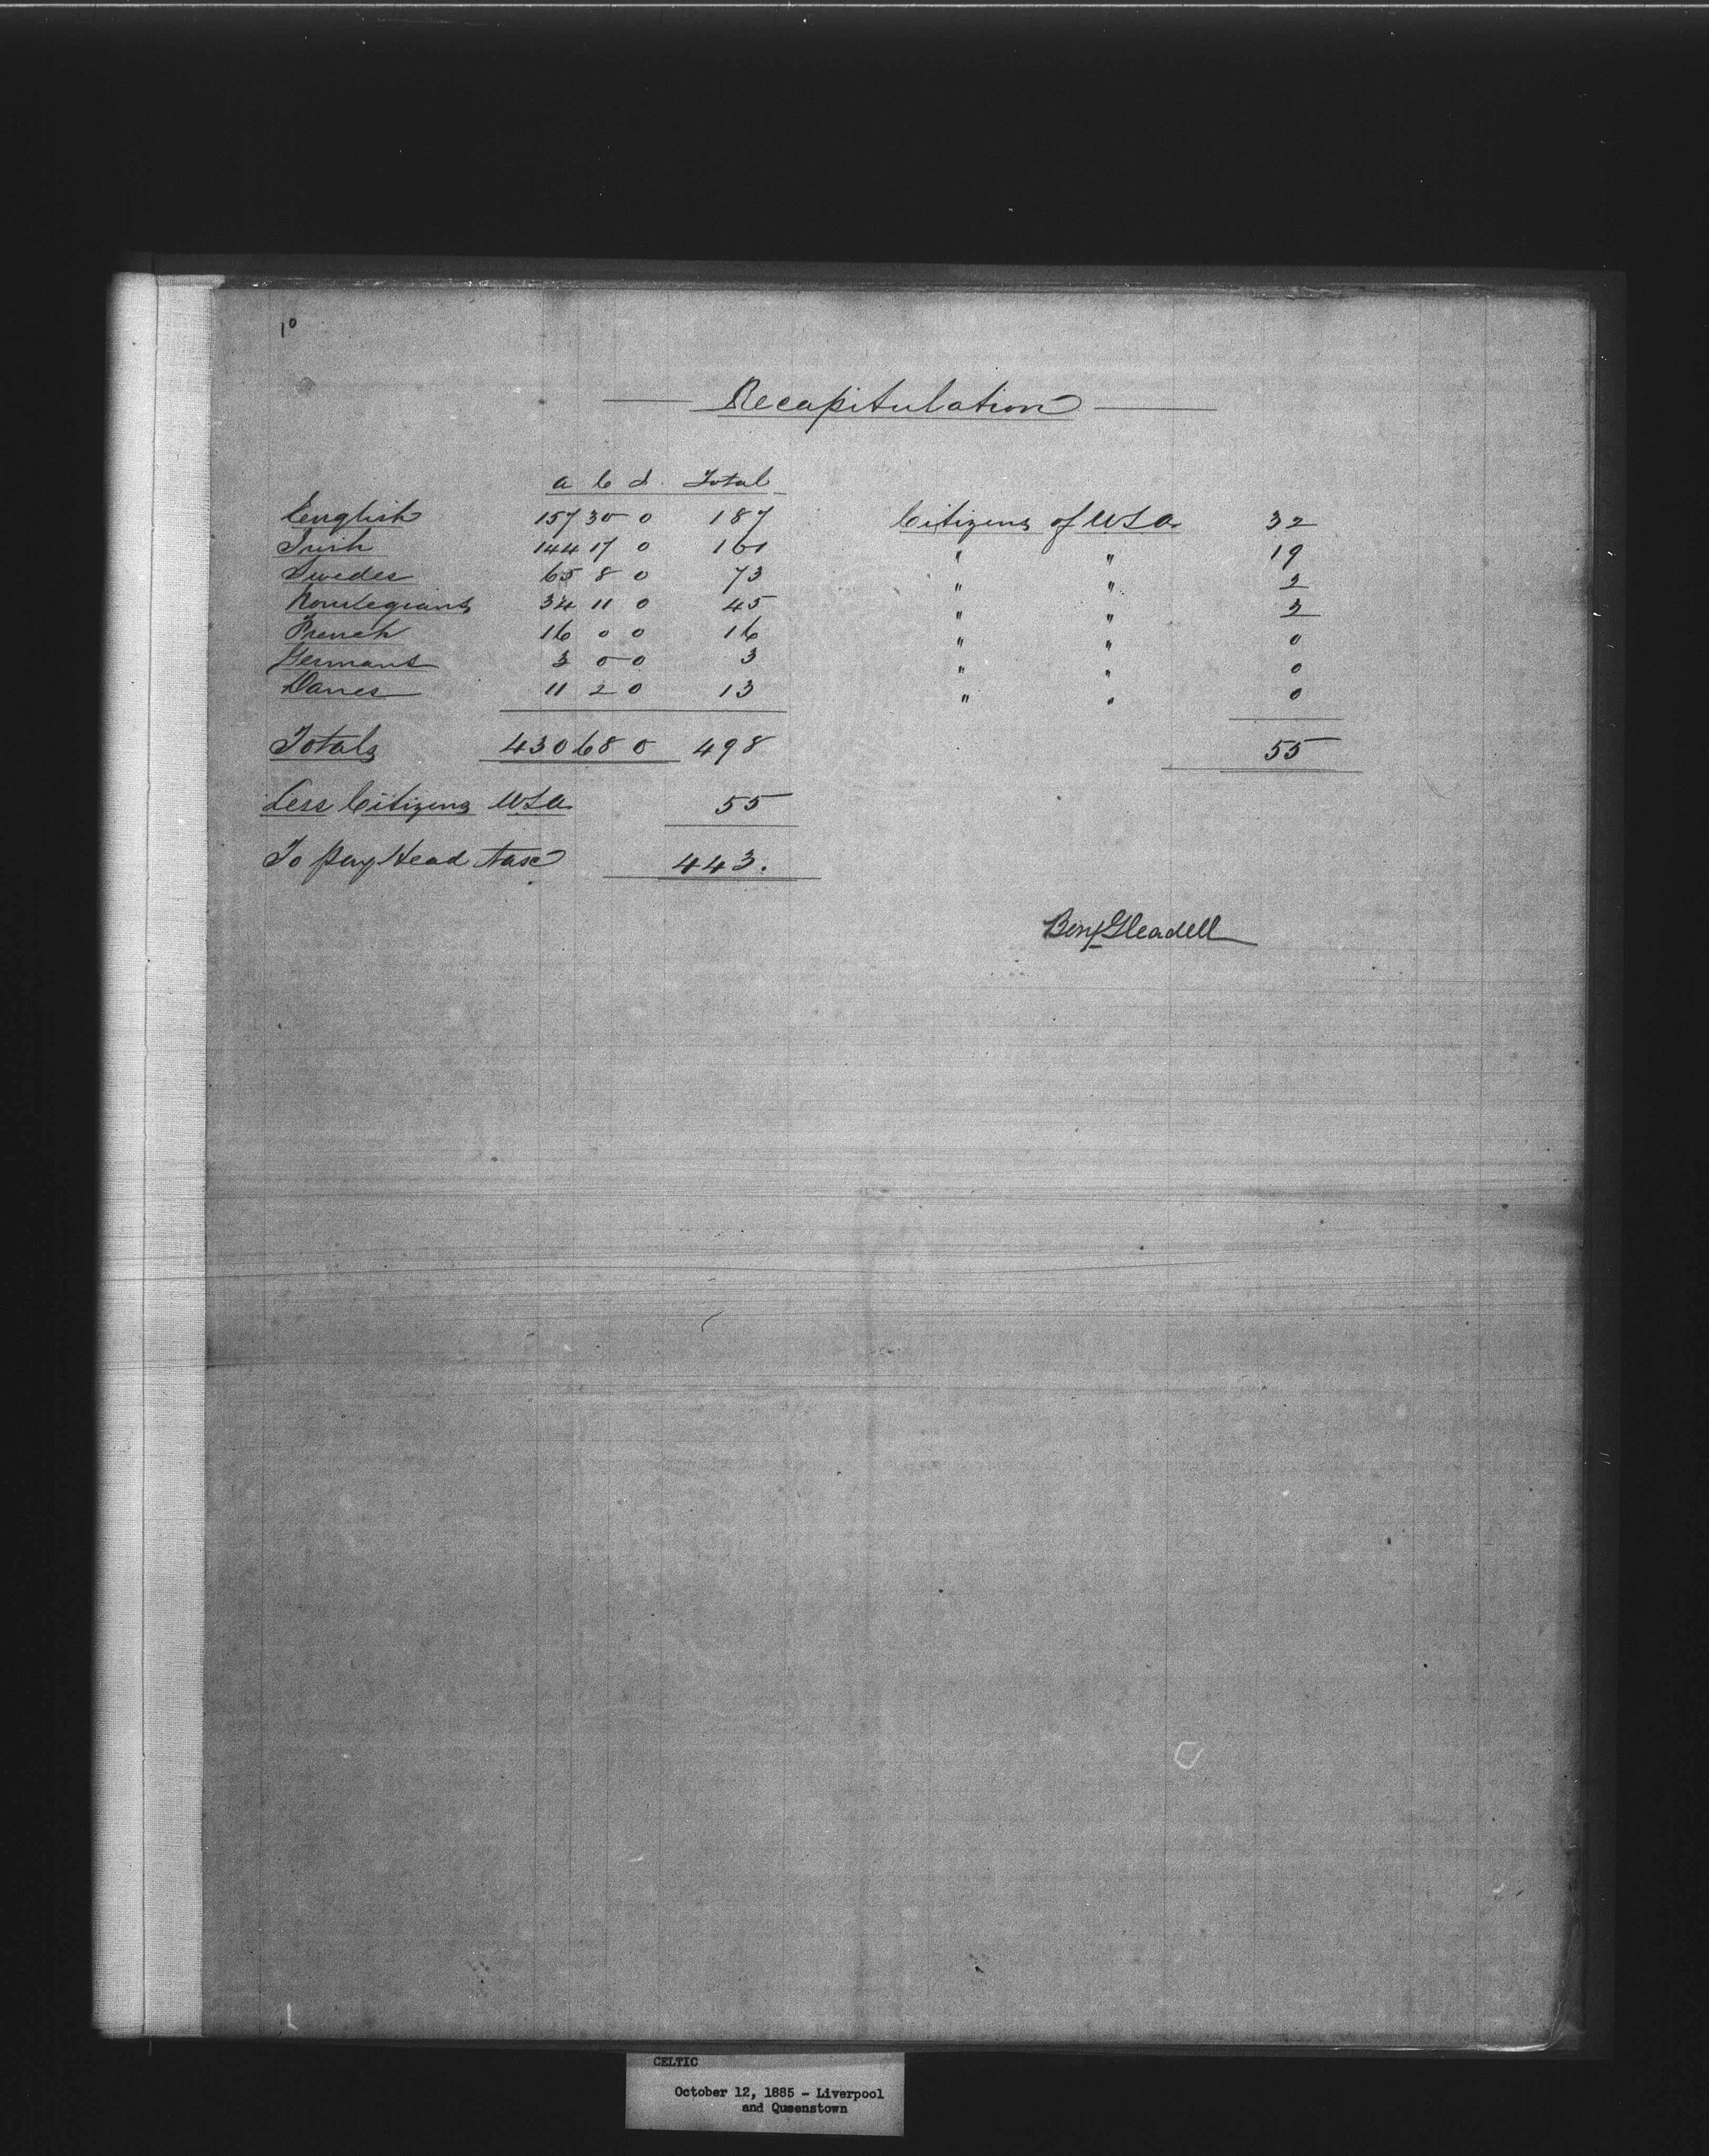 10
Recapitulation
a c d. Total
English 157 30 0 187 Citizens of USA 32
Irish 144 17 0 161 " " 19
Swedes 65 8 0 73 " " 2
Norwegians 34 11 0 45 " " 2
French 16 0 0 16 " " 0
Germans 3 0 0 3 " " 0
Danes 11 2 0 13 " " 0
Totals 430 68 0 498 55
Less Citizens USA 55
To pay Head Tax 443.
Benj Gleadell
CELTIC
October 12, 1885 - Liverpool
and Queenstown